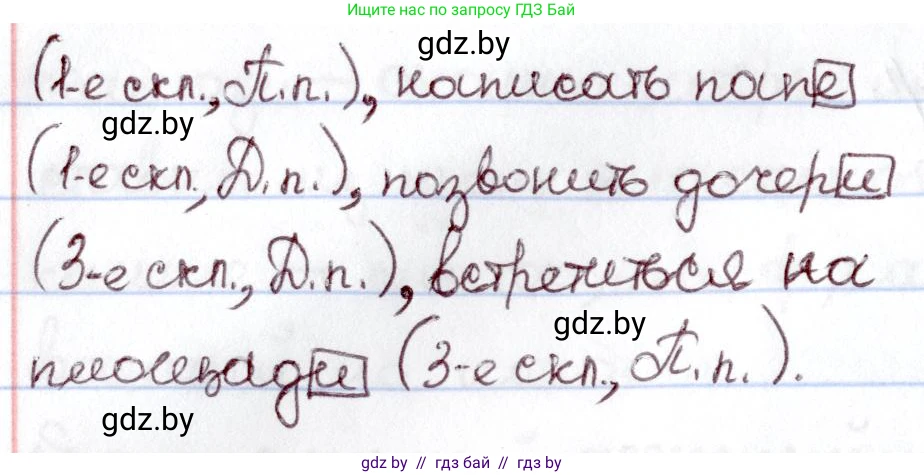 Ищите нас по запросу ГДЗ Бай
gdz.by
(1-е скл., П.п.), написать папе
gdz.by
(1-е скл., Д.п.), позвонить дочери
(3-е скл., Д.п.), встретиться на
gdz.by
площади (3-е скл., П.п.).
gdz.by
gdz.by // гдз бай // gdz by